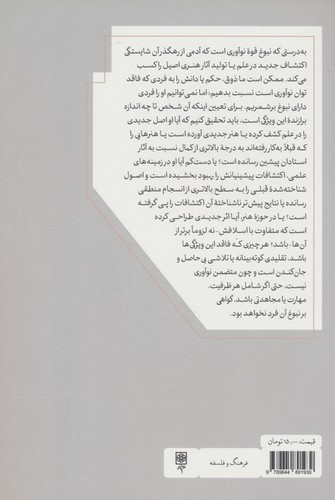 به‌درستی که نبوغ قوهٔ نوآوری است که آدمی از رهگذر آن شایستگی
اکتشاف جدید در علم یا تولید آثار هنری اصیل را کسب
می‌کند. ممکن است ما ذوق، حکم یا دانش را به فردی که فاقد
توان نوآوری است نسبت بدهیم؛ اما نمی‌توانیم او را فردی
دارای نبوغ برشمریم. برای تعیین اینکه آن شخص تا چه اندازه
برازندهٔ این ویژگی است، باید تحقیق کنیم که آیا او اصل جدیدی
را در علم کشف کرده یا هنر جدیدی آورده است یا هنرهایی را
که قبلاً به‌کار رفته‌اند به درجهٔ بالاتری از کمال نسبت به آثار
استادان پیشین رسانده است؛ یا دست‌کم آیا او در زمینه‌های
علمی، اکتشافات پیشینیانش را بهبود بخشیده است و اصول
شناخته‌شدهٔ قبلی را به سطح بالاتری از انسجام منطقی
رسانده یا نتایج پیش‌تر ناشناختهٔ آن اکتشافات را پی گرفته
است؛ یا در حوزهٔ هنر، آیا اثر جدیدی طراحی کرده
است که متفاوت با اسلافش -نه لزوماً برتر از
آن‌ها- باشد؛ هر چیزی که فاقد این ویژگی‌ها
باشد، تقلیدی کوته‌بینانه یا تلاشی بی‌حاصل و
جان‌کندن است و چون متضمن نوآوری
نیست، حتی اگر شامل هر ظرفیت،
مهارت یا مجاهدتی باشد، گواهی
بر نبوغ آن فرد نخواهد بود.
قیمت: ۱۵۰۰۰ تومان
فرهنگ و فلسفه
9 789644 891939